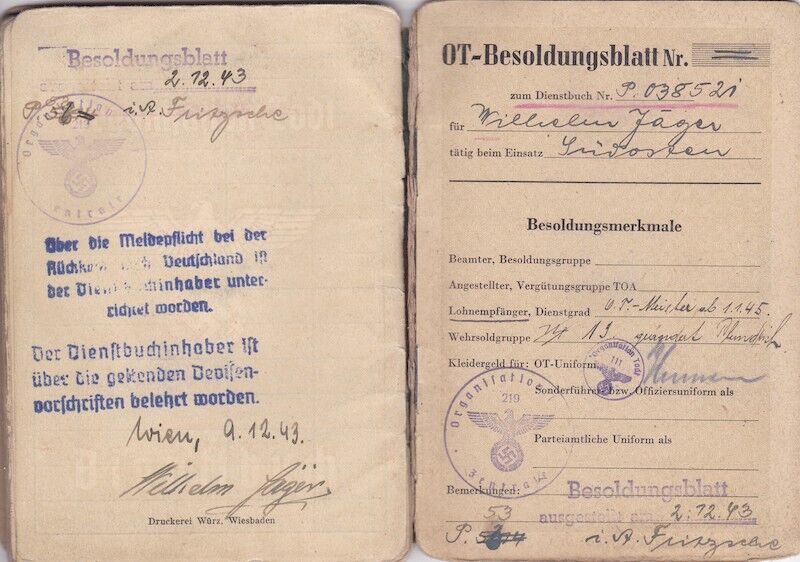 Besoldungsblatt
ausgestellt am 2.12.43
P. i.A. Fritzsche
Organisation
219
Zentrale
Über die Meldepflicht bei der
Rückkehr nach Deutschland ist
der Dienstbuchinhaber unter-
richtet worden.
Der Dienstbuchinhaber ist
über die geltenden Devisen-
vorschriften belehrt worden.
Wien, 9.12.43.
Wilhelm Jäger.
Druckerei Würz, Wiesbaden
OT-Besoldungsblatt Nr.
zum Dienstbuch Nr. P. 038521
für Wilhelm Jäger
tätig beim Einsatz Südosten
Besoldungsmerkmale
Beamter, Besoldungsgruppe
Angestellter, Vergütungsgruppe TOA
Lohnempfänger, Dienstgrad O.T.-Meister ab 1.1.45.
Wehrsoldgruppe 13 geändert
Kleidergeld für: OT-Uniform
Organisation Todt
111
Sonderführer- bzw. Offiziersuniform als
Organisation
219
Zentrale
Parteiamtliche Uniform als
Bemerkungen: Besoldungsblatt
ausgestellt am 2.12.43
53
P. i.A. Fritzsche